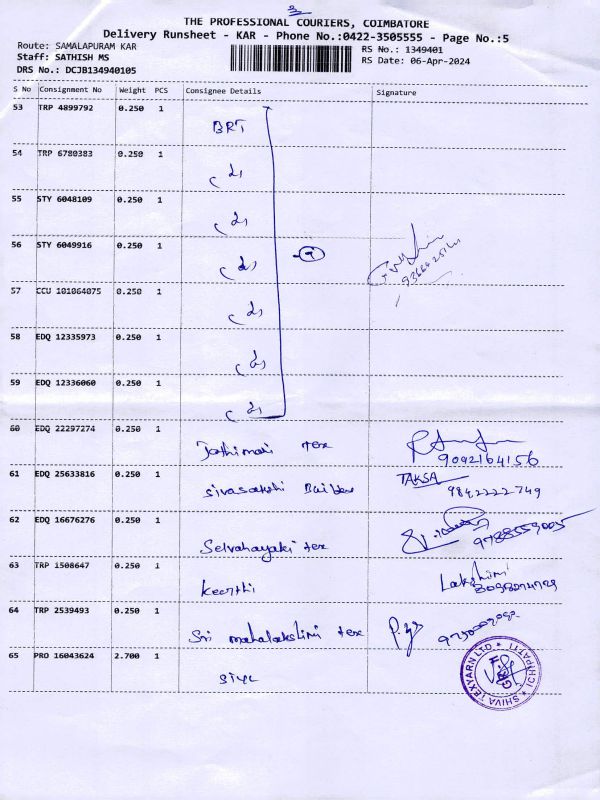 THE PROFESSIONAL COURIERS, COIMBATORE
Delivery Runsheet - KAR - Phone No.:0422-3505555 - Page No.:5
Route: SAMALAPURAM KAR
RS No.: 1349401
Staff: SATHISH MS
RS Date: 06-Apr-2024
DRS No.: DCJB134940105
S No Consignment No Weight PCS Consignee Details Signature
53 TRP 4899792 0.250 1
BRT
54 TRP 6780383 0.250 1
55 STY 6048109 0.250 1
56 STY 6049916 0.250 1
57 CCU 101064075 0.250 1
58 EDQ 12335973 0.250 1
59 EDQ 12336060 0.250 1
60 EDQ 22297274 0.250 1
tex
9092164156
61 EDQ 25633816 0.250 1
TAKSA
9842222749
62 EDQ 16676276 0.250 1
tex
9788559005
63 TRP 1508647 0.250 1
Keerthi
Lakshimi
64 TRP 2539493 0.250 1
Sri mahalakshimi tex
65 PRO 16043624 2.700 1
SHIVA TEXYARN LTD
ICHIPATTI